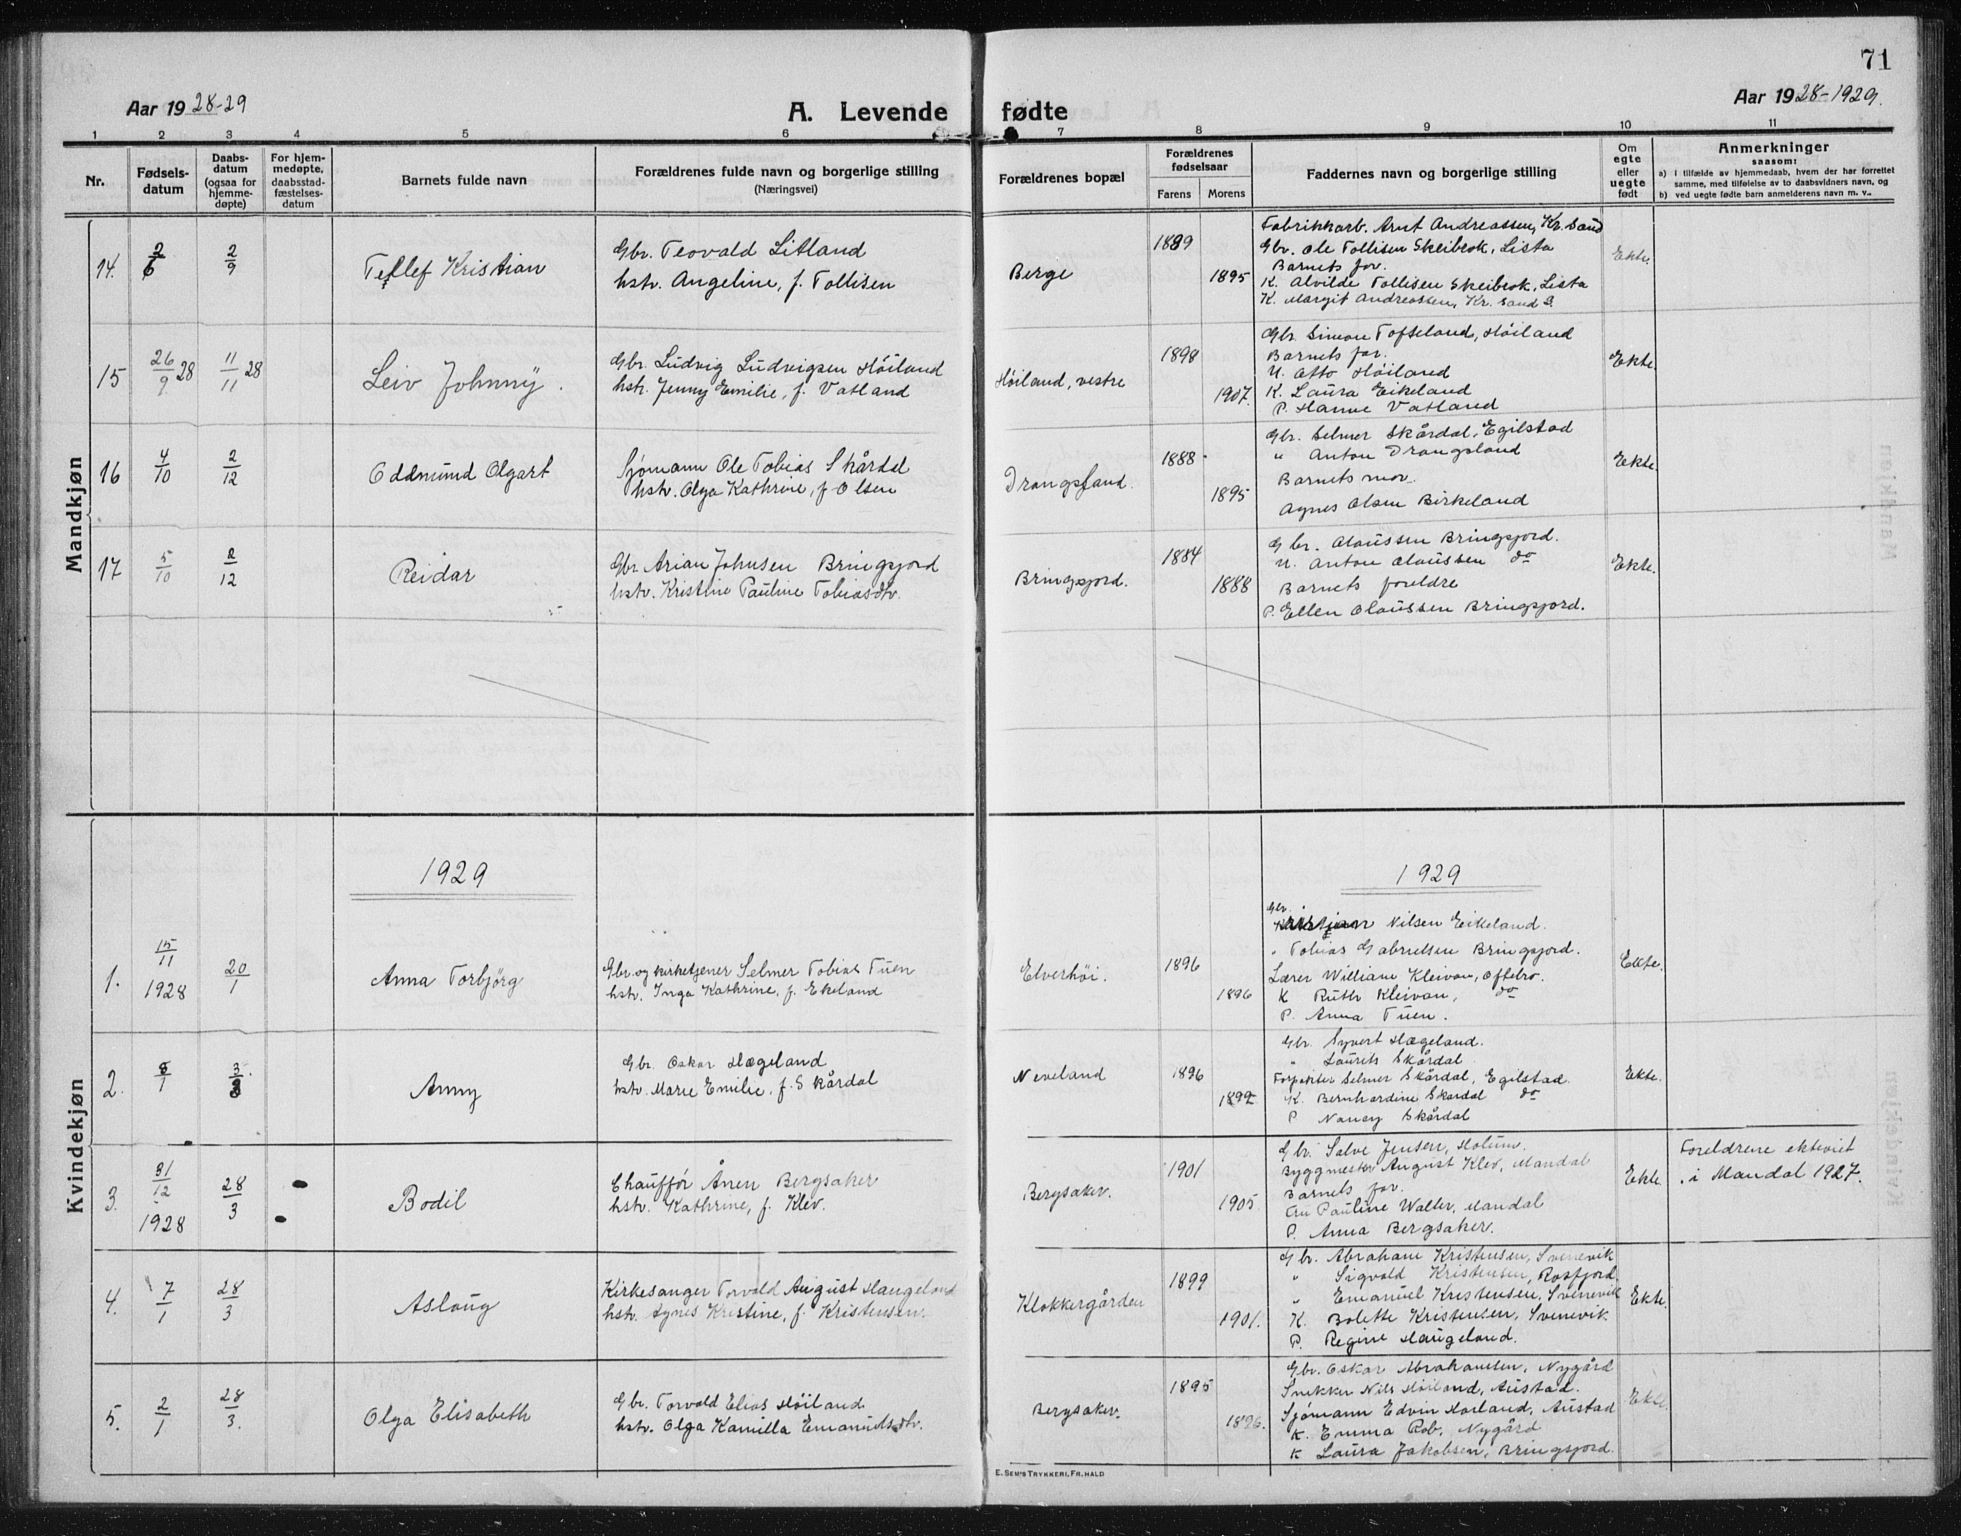 71
Aar 1928-29
A. Levende fødte
Aar 1928-1929.
1 2 3 4 5 6 7 8 9 10 11
Nr.
Fødsels-
datum
Daabs-
datum
(ogsaa for
hjemme-
døpte)
For hjem-
medøpte,
daabsstad-
fæstelses-
datum
Barnets fulde navn
Forældrenes fulde navn og borgerlige stilling
(Næringsvei)
Forældrenes bopæl
Forældrenes
fødselsaar
Farens Morens
Faddernes navn og borgerlige stilling
Om
egte
eller
uegte
født
Anmerkninger
saasom:
a) i tilfælde av hjemmedaab, hvem der har forrettet
samme, med tilføielse av to daabsvidners navn, og
b) ved uegte fødte barn anmelderens navn m. v..
Mandkjøn
14. 2/6 2/9
Tellef Kristian
Gbr. Teovald Litland
hstr. Angeline, f. Tollisen
Berge
1889
1895
Fabrikkarb. Arnt Andreassen, Kr. Sand
Gbr. Ole Tollisen Skeibrok, Lista
Barnets far.
K. Alvilde Tollisen Skeibrok, Lista
K. Margit Andreassen, Kr. Sand S.
Ekte.
15 26/9 28 11/11 28
Leiv Johnny.
Gbr. Ludvig Ludvigsen Høiland
hstr. Jenny Emilie, f. Vatland
Høiland, vestre
1898
1907.
Gbr. Simon Tofteland, Høiland
Barnets far.
U. Otto Høiland
K. Laura Eikeland
P. Hanne Vatland
Ekte.
16 4/10 2/12
Oddmund Olgart
Sjømann Ole Tobias Skårdal
hstr. Olga Kathrine, f. Olsen
Drangsland.
1888
1895
Gbr. Selmer Skårdal, Egilstad
" Anton Drangsland
Barnets mor.
Agnes Olsen Birkeland
Ekte.
17 5/10 2/12
Reidar
Gbr. Arian Johnsen Bringsjord
hstr. Kristine Pauline Tobiasdtr.
Bringsjord.
1884
1888
Gbr. Olaussen Bringsjord.
U. Anton Olaussen do
Barnets foreldre
P. Ellen Olaussen Bringsjord.
Ekte.
Kvindekjøn
1929
1929
1. 15/11 1928 20/1
Anna Torbjørg
Gbr. og kirketjener Selmer Tobias Tuen
hstr. Inga Kathrine, f. Ekeland
Elverhøi.
1896
1896
Gbr.
Kristian Nilsen Eikeland.
" Tobias Gabrielsen Bringsjord.
Lærer William Kleivan, Oftebro.
K Ruth Kleivan, do
P. Anna Tuen.
Ekte.
2. 8/1 3/3
Anny
Gbr. Oskar Hægeland
hstr. Marie Emilie, f. Skårdal
Neveland
1896
1892
Gbr. Syvert Hægeland.
" Laurits Skårdal
Forpakter Selmer Skårdal, Egilstad.
K. Bernhardine Skårdal do
P. Nancy Skårdal
Ekte.
3. 31/12 1928 28/3
Bodil
Chauffør Ånen Bergsaker
hstr. Kathrine, f. Klev.
Bergsaker.
1901
1905
Gbr. Salve Jensen, Holum.
Byggmester August Klev, Mandal
Barnets far.
Fru Pauline Walter, Mandal
P. Anna Bergsaker.
Ekte.
Foreldrene ekteviet
i Mandal 1927.
4. 7/1 28/3
Aslaug
Kirkesanger Torvald August Haugeland
hstr. Agnes Kristine, f. Kristensen.
Klokkergården
1899
1901.
Gbr. Abraham Kristensen, Svenevik
" Sigvald Kristensen, Rosfjord
" Emanuel Kristensen, Svenevik
K. Bolette Kristensen, Svenevik.
P. Regine Haugeland.
Ekte.
5. 2/1 28/3.
Olga Elisabeth
Gbr. Torvald Elias Høiland
hstr. Olga Kamilla Emanuelsdtr.
Bergsaker.
1895
1896.
Gbr. Oskar Abrahamsen, Nygård
Snekker Nils Høiland, Austad.
Sjømann Edvin Horland, Austad
K. Emma Rob, Nygård
K Laura Jakobsen, Bringsjord.
Ekte.
E. SEM'S TRYKKERI, FR.HALD